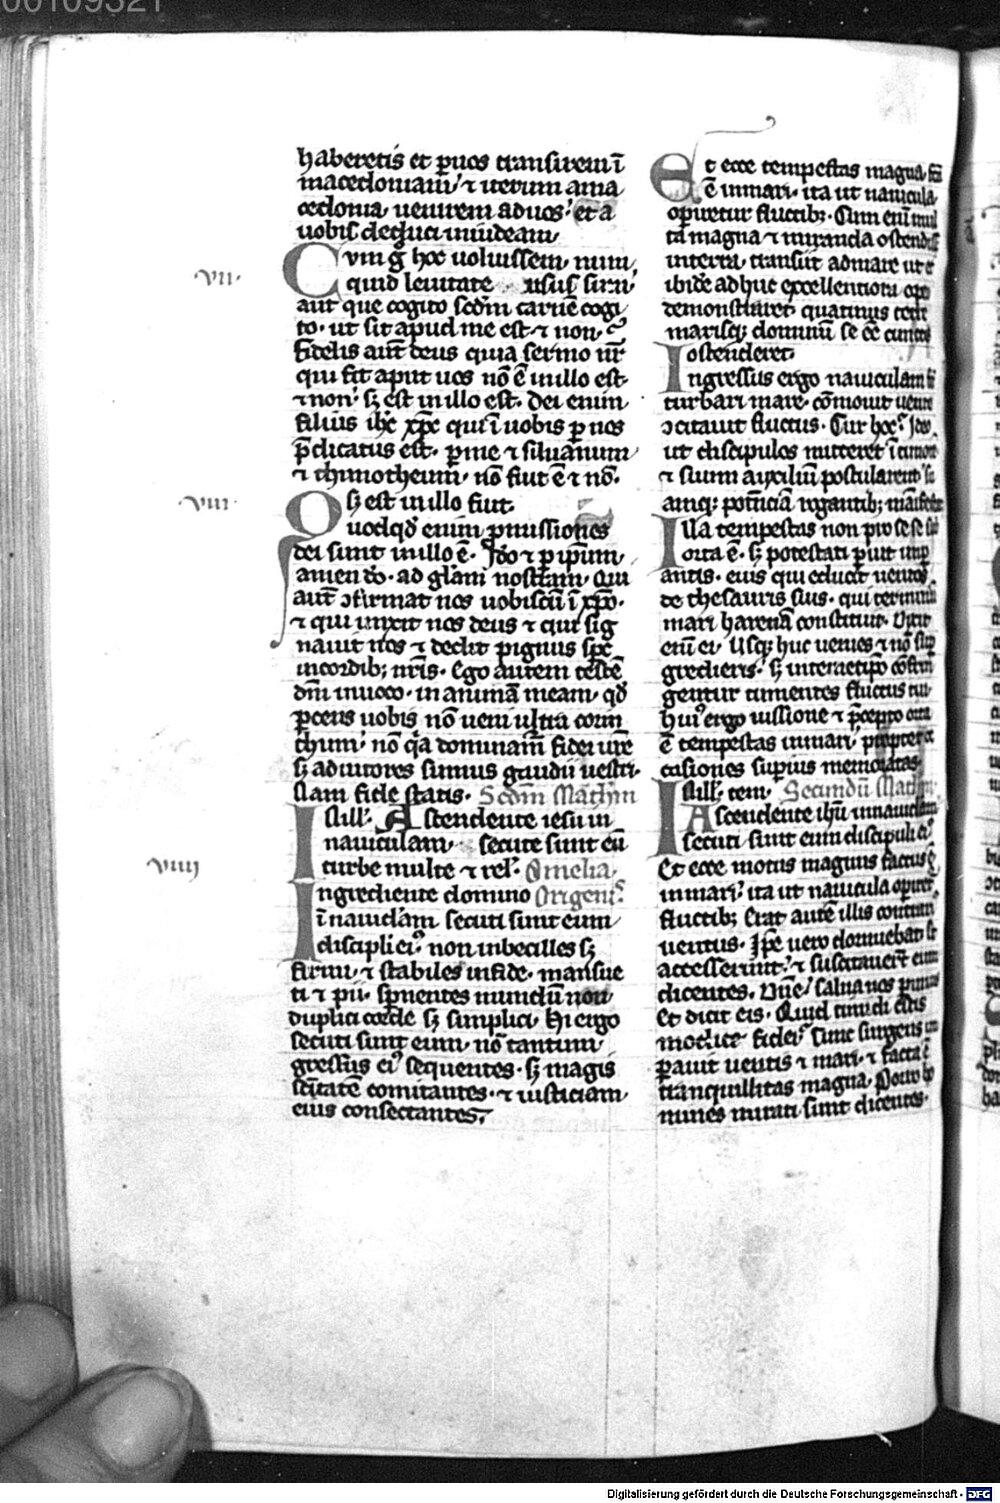 00109321
haberetis et ꝑ uos transirem ī
macedoniam ⁊ iterum a ma
cedonia uenirem ad uos et a
uobis deduci in iudeam
vii
Cvm g̊ hoc uoluissem num
quid leuitate usus sum
aut que cogito scd̄m carnē cogi
to ut sit apud me est ⁊ non
fidelis aut̄ deus quia sermo nr̄
qui fit aput uos nō ē in illo est
⁊ non sꝫ est in illo est dei enim
filius ih̄c xp̄c qui ī uobis ꝑ nos
p̄dicatus est ꝑ me ⁊ siluanum
⁊ thimotheum nō fuit ē ⁊ nō
sꝫ est in illo fuit
viii
Quodqd̄ enim ꝓmissiones
dei sunt in illo ē Ido ⁊ ꝑ ip̄um
amen dō ad glam nostram Qui
aut̄ ꝯfirmat nos uobiscū ī xp̄o
⁊ qui unxit nos deus ⁊ qui sig
nauit nos ⁊ dedit pignus sp̄c
in cordibꝫ nr̄is Ego autem testē
dn̄m inuoco in animā meam qd̄
ꝑcens uobis nō ueni ultra corin
thum nō q̄a dominam̄ fidei ur̄e
sꝫ adiutores sumus gaudii uestri
Nam fide statis Scd̄m Mathm
viiii
In ill' Ascendente iesu in
nauiculam secute sunt eū
turbe multe ⁊ rel' Omelia
Ingrediente domino Origenis
ī nauiclam secuti sunt eum
discipli ei' non inbecilles sꝫ
firmi ⁊ stabiles in fide mansue
ti ⁊ pii sp̄nentes mundū non
duplici corde sꝫ simplici Hi ergo
secuti sunt eum nō tantum
gressus ei' sequentes sꝫ magis
sc̄itatē comitantes ⁊ iusticiam
eius consectantes
Et ecce tempestas magna
ē in mari ita ut nauicula
operiretur fluctibꝫ Cum enī mul
ta magna ⁊ miranda ostendiss
in terra transiit ad mare ut ⁊
ibidē adhuc excellentiora opa
demonstraret quatinus terre
marisqꝫ dominū se ēē cunctis
ostenderet
Ingressus ergo nauiculam
turbari mare cōmouit uento
ꝯcitauit fluctus Cur hoc Ido
ut discipulos mitteret ī timorē
⁊ suum auxiliū postularent
amqꝫ potn̄ciam rogantibꝫ
Illa tempestas non pro se se
orta ē sꝫ potestati ꝑuit imp
antis eius qui educit uentos
de thesauris suis qui terminū
mari harenā constituit Dixit
enī ei Usqꝫ huc uenies ⁊ nō
gredieris
gentur timentes fluctus tui
Hui' ergo iussione ⁊ p̄cepto orta
ē tempestas in mari propter
casiones superius memoratas
In ill' tem Secundū Mathm
Ascendente ih̄u in nauiclam
secuti sunt eum discipuli ei'
Et ecce motus magnus factus ē
in mari ita ut nauicula operiret
fluctibꝫ Erat autē illis contrari
uentus Ip̄e uero dormiebat Et
accesserunt ⁊ suscitauer̄t eum
dicentes Dn̄e salua nos ꝑimus
Et dicit eis Quid timidi estis
modice fidei Tunc surgens im
ꝑauit uentis ⁊ mari ⁊ facta ē
tranquillitas magna Porro ho
mines mirati sunt dicentes
Digitalisierung gefördert durch die Deutsche Forschungsgemeinschaft - DFG